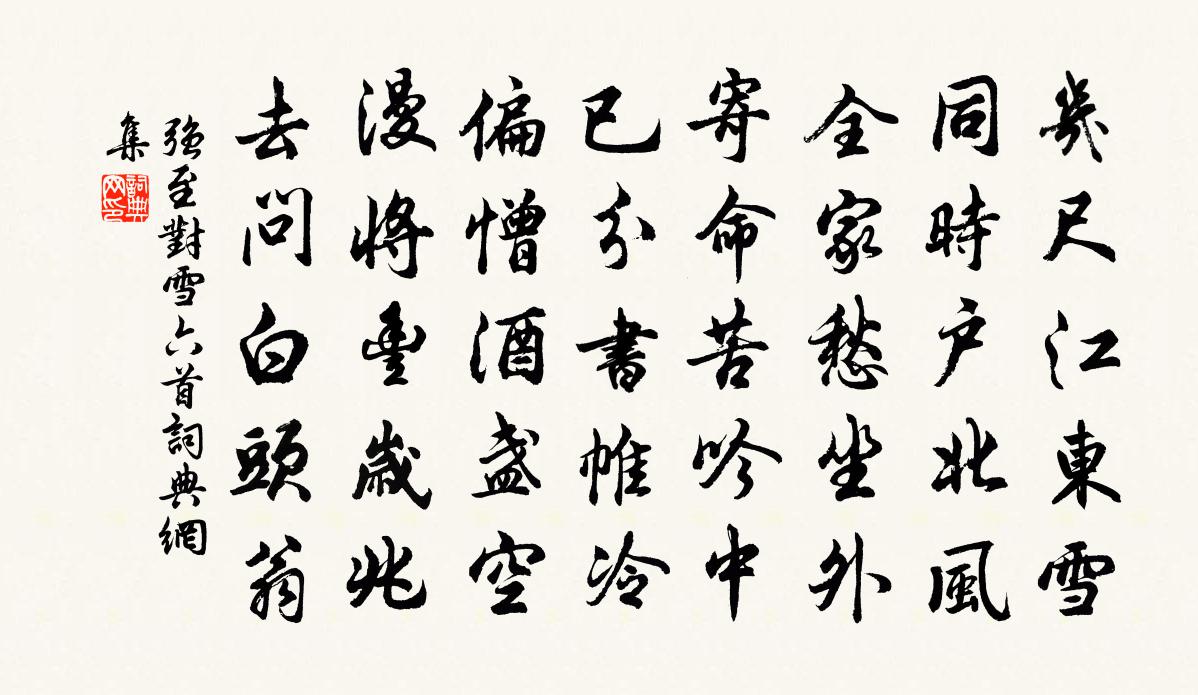 幾尺江東雪
同時戶北風
全家愁坐外
寄命苦吟中
已分書帷冷
偏憎酒盞空
漫將豐歲兆
去問白頭翁
強至對雪六首詞典網
集
詞典
網印